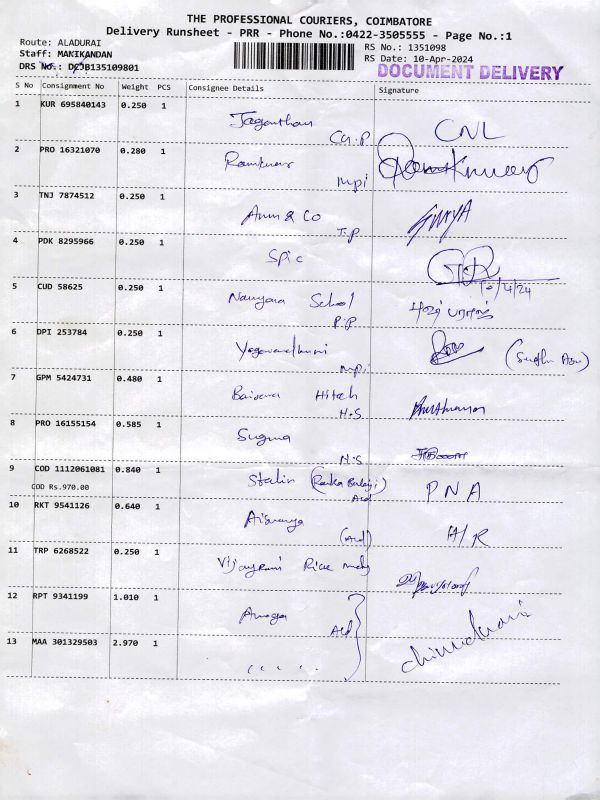 THE PROFESSIONAL COURIERS, COIMBATORE
Delivery Runsheet - PRR - Phone No.:0422-3505555 - Page No.:1
Route: ALADURAI
RS No.: 1351098
Staff: MANIKANDAN
RS Date: 10-Apr-2024
DRS No.: DCJB135109801
DOCUMENT DELIVERY
S No Consignment No Weight PCS Consignee Details Signature
1 KUR 695840143 0.250 1 Jaganthan CNL
2 PRO 16321070 0.280 1 Ramkumar Ramkumar
mpi
3 TNJ 7874512 0.250 1 Arun & Co Surya
T.P
4 PDK 8295966 0.250 1 Spic
10/4/24
5 CUD 58625 0.250 1 Narayana School
P.P
6 DPI 253784 0.250 1
mpi
7 GPM 5424731 0.480 1 Hitech
H.S
8 PRO 16155154 0.585 1 Suguna
H.S
9 COD 1112061081 0.840 1 Stalin PNA
COD Rs.970.00
10 RKT 9541126 0.640 1 Aiswarya H/R
(Ald)
11 TRP 6268522 0.250 1 Rice
12 RPT 9341199 1.010 1
Ald
13 MAA 301329503 2.970 1